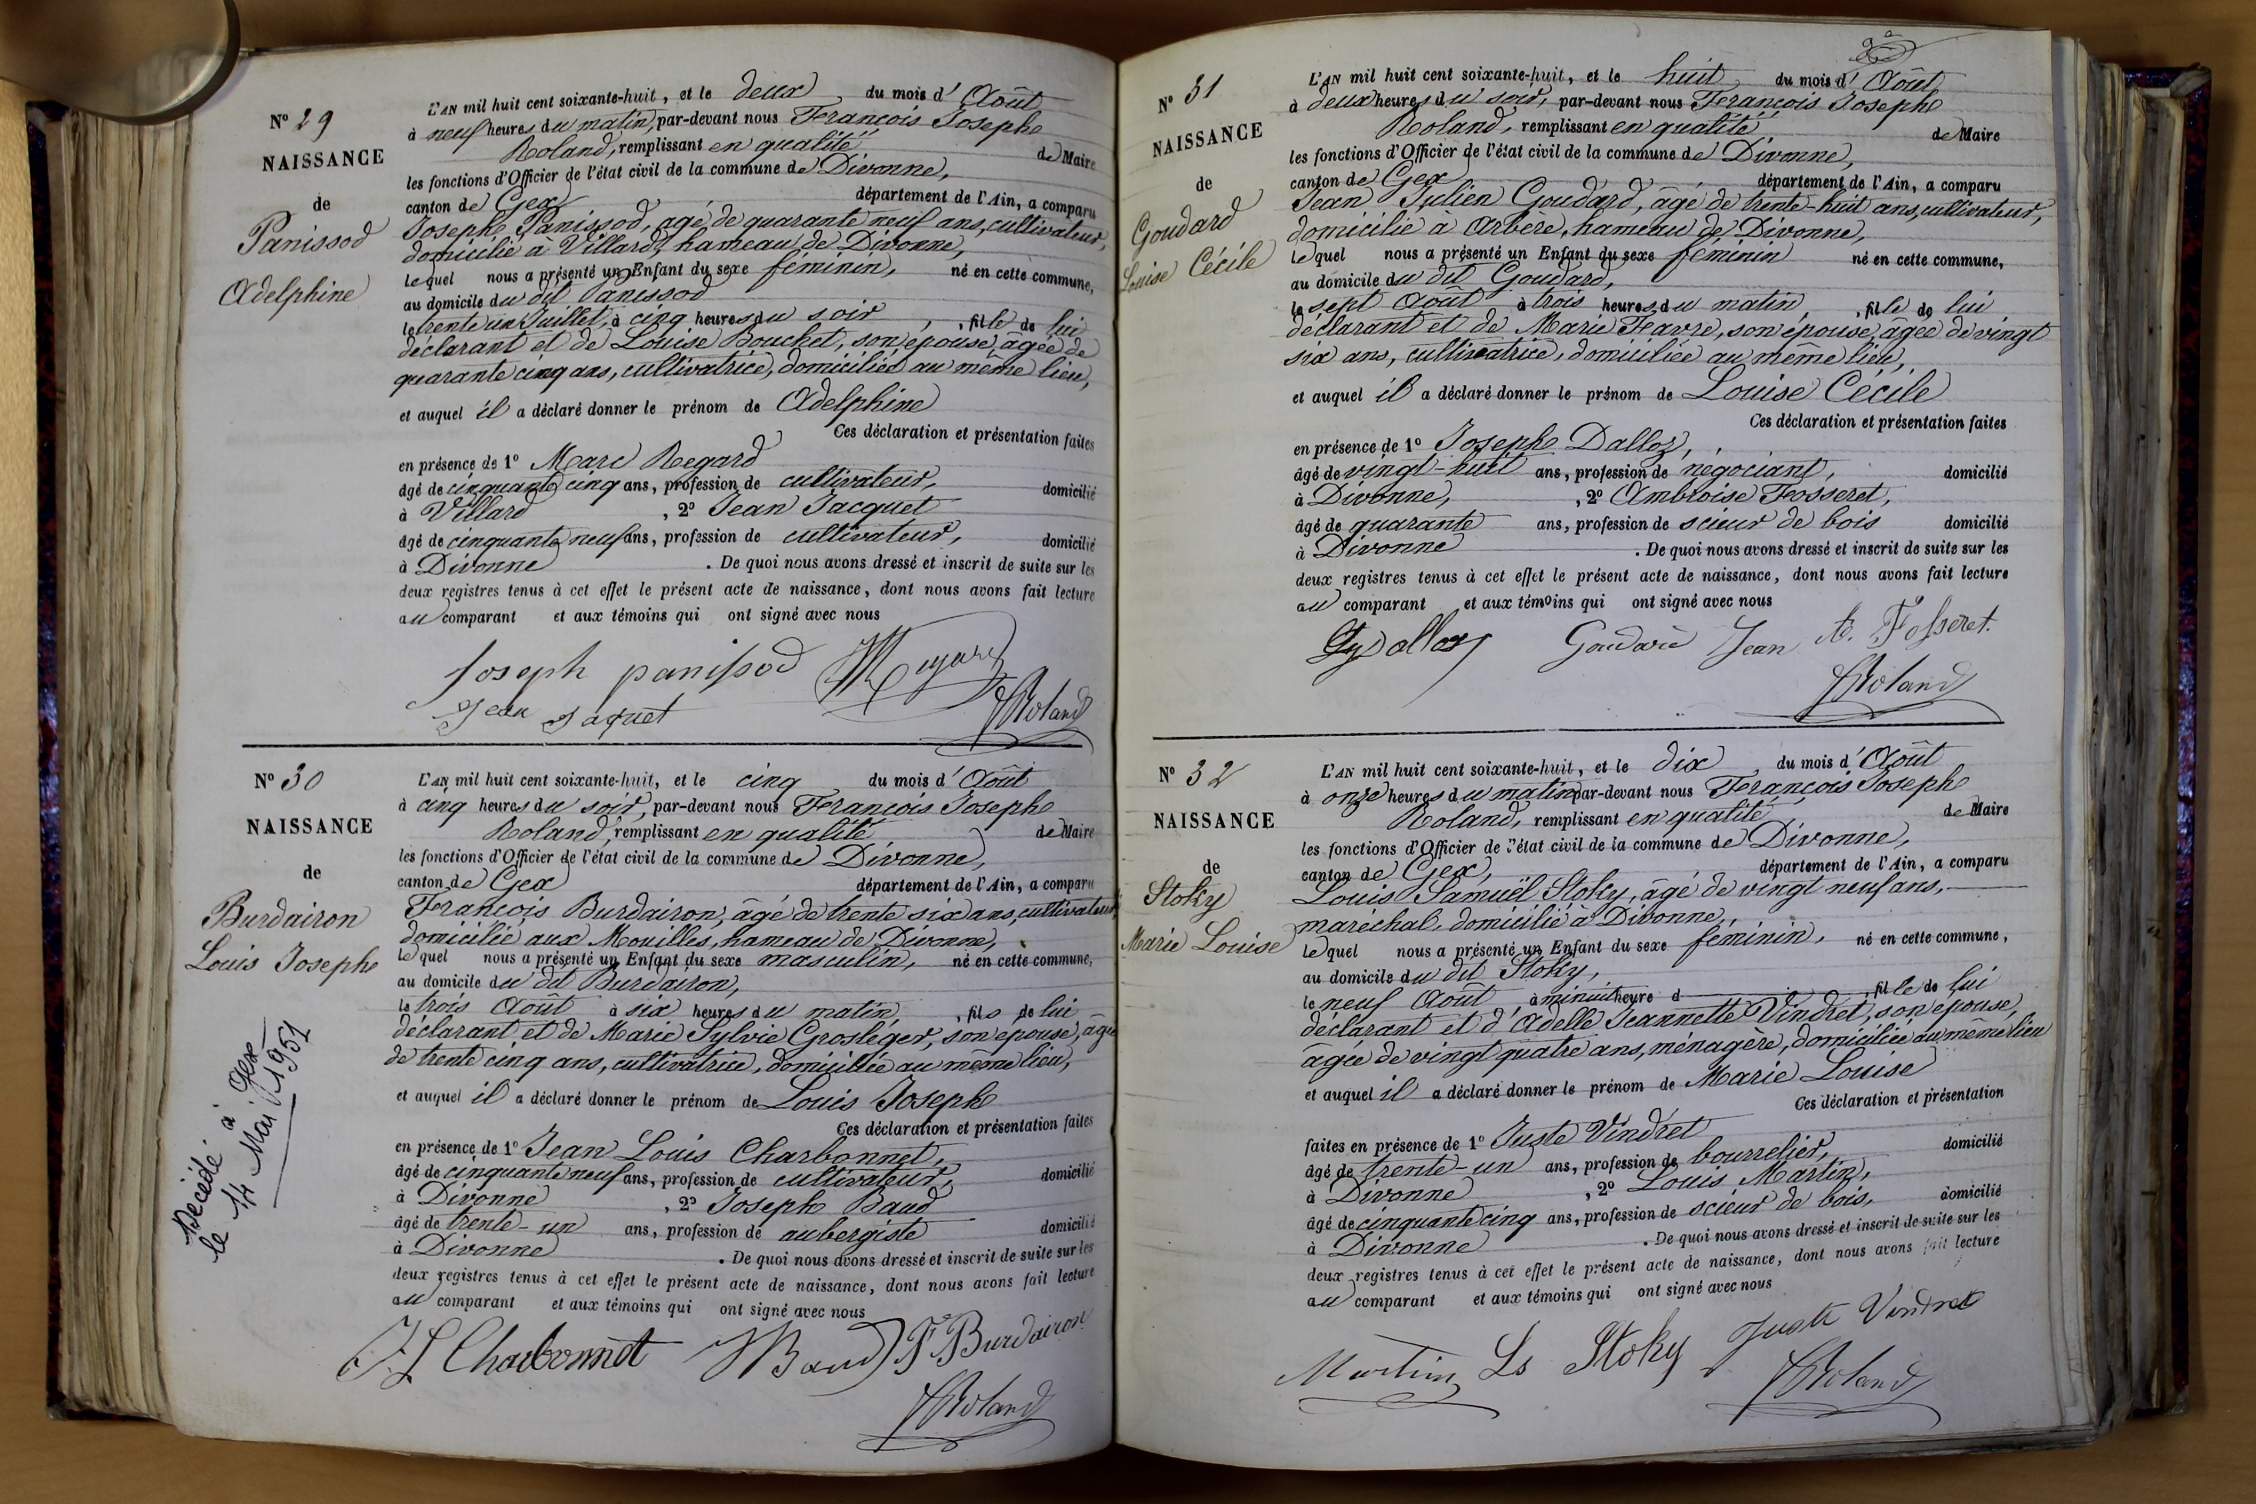 N° 29
NAISSANCE
de
Panissod
Adelphine
L'AN mil huit cent soixante-huit, et le deux du mois d'Août
à neuf heures du matin, par-devant nous François Joseph
Roland, remplissant en qualité de Maire
les fonctions d'Officier de l'état civil de la commune de Divonne,
canton de Gex département de l'Ain, a comparu
Joseph Panissod, agé de quarante neuf ans, cultivateur,
domicilié à Villard, hameau de Divonne,
lequel nous a présenté un Enfant du sexe féminin, né en cette commune,
au domicile du dit Panissod
le trente un Juillet, à cinq heures du soir, fille de lui
déclarant et de Louise Bouchet, son épouse, âgée de
quarante cinq ans, cultivatrice, domiciliée au même lieu,
et auquel il a déclaré donner le prénom de Adelphine
Ces déclaration et présentation faites
en présence de 1° Marc Regard
âgé de cinquante cinq ans, profession de cultivateur, domicilié
à Villard, 2° Jean Jacquet
âgé de cinquante neuf ans, profession de cultivateur, domicilié
à Divonne. De quoi nous avons dressé et inscrit de suite sur les
deux registres tenus à cet effet le présent acte de naissance, dont nous avons fait lecture
au comparant et aux témoins qui ont signé avec nous
Joseph panissod
Jean Jaquet
Roland
N° 30
NAISSANCE
de
Burdairon
Louis Joseph
Décédé à Gex
le 14 Mai 1951
L'AN mil huit cent soixante-huit, et le cinq du mois d'Août
à cinq heures du soir, par-devant nous François Joseph
Roland, remplissant en qualité de Maire
les fonctions d'Officier de l'état civil de la commune de Divonne,
canton de Gex département de l'Ain, a comparu
François Burdairon, âgé de trente six ans, cultivateur
domicilié aux Mouilles, hameau de Divonne,
lequel nous a présenté un Enfant du sexe masculin, né en cette commune,
au domicile du dit Burdairon,
le trois Août à six heures du matin, fils de lui
déclarant et de Marie Sylvie Grosléger, son épouse, âgée
de trente cinq ans, cultivatrice, domiciliée au même lieu,
et auquel il a déclaré donner le prénom de Louis Joseph
Ces déclaration et présentation faites
en présence de 1° Jean Louis Charbonnet,
âgé de cinquante neuf ans, profession de cultivateur, domicilié
à Divonne, 2° Joseph Baud
âgé de trente-un ans, profession de aubergiste domicilié
à Divonne. De quoi nous avons dressé et inscrit de suite sur les
deux registres tenus à cet effet le présent acte de naissance, dont nous avons fait lecture
au comparant et aux témoins qui ont signé avec nous
J L Charbonnet Baud Fs Burdairon
Roland
N° 31
NAISSANCE
de
Goudard
Louise Cécile
L'AN mil huit cent soixante-huit, et le huit du mois d'Août
à deux heures du soir, par-devant nous François Joseph
Roland, remplissant en qualité de Maire
les fonctions d'Officier de l'état civil de la commune de Divonne,
canton de Gex département de l'Ain, a comparu
Jean Julien Goudard, âgé de trente-huit ans, cultivateur,
domicilié à Arbère, hameau de Divonne,
lequel nous a présenté un Enfant du sexe féminin né en cette commune,
au domicile du dit Goudard,
le sept Août à trois heures du matin, fille de lui
déclarant et de Marie Favre, son épouse, âgée de vingt
six ans, cultivatrice, domiciliée au même lieu,
et auquel il a déclaré donner le prénom de Louise Cécile
Ces déclaration et présentation faites
en présence de 1° Joseph Dalloz,
âgé de vingt-huit ans, profession de négociant, domicilié
à Divonne, 2° Ambroise Fosseret,
âgé de quarante ans, profession de scieur de bois domicilié
à Divonne. De quoi nous avons dressé et inscrit de suite sur les
deux registres tenus à cet effet le présent acte de naissance, dont nous avons fait lecture
au comparant et aux témoins qui ont signé avec nous
Dalloz Goudard Jean A. Fosseret.
Roland
N° 32
NAISSANCE
de
Stoky
Marie Louise
L'AN mil huit cent soixante-huit, et le dix du mois d'Août
à onze heures du matin par-devant nous François Joseph
Roland, remplissant en qualité de Maire
les fonctions d'Officier de l'état civil de la commune de Divonne,
canton de Gex, département de l'Ain, a comparu
Louis Samuël Stoky, âgé de vingt neuf ans,
maréchal, domicilié à Divonne,
lequel nous a présenté un Enfant du sexe féminin, né en cette commune,
au domicile du dit Stoky,
le neuf Août à minuit heure d , fille de lui
déclarant et d'Adelle Jeannette Vindret, son épouse,
âgée de vingt quatre ans, ménagère, domiciliée au même lieu
et auquel il a déclaré donner le prénom de Marie Louise
Ces déclaration et présentation
faites en présence de 1° Juste Vindret
âgé de trente-un ans, profession de bourrelier, domicilié
à Divonne, 2° Louis Martin,
âgé de cinquante cinq ans, profession de scieur de bois, domicilié
à Divonne. De quoi nous avons dressé et inscrit de suite sur les
deux registres tenus à cet effet le présent acte de naissance, dont nous avons fait lecture
au comparant et aux témoins qui ont signé avec nous
Martin Ls Stoky Juste Vindret
Roland